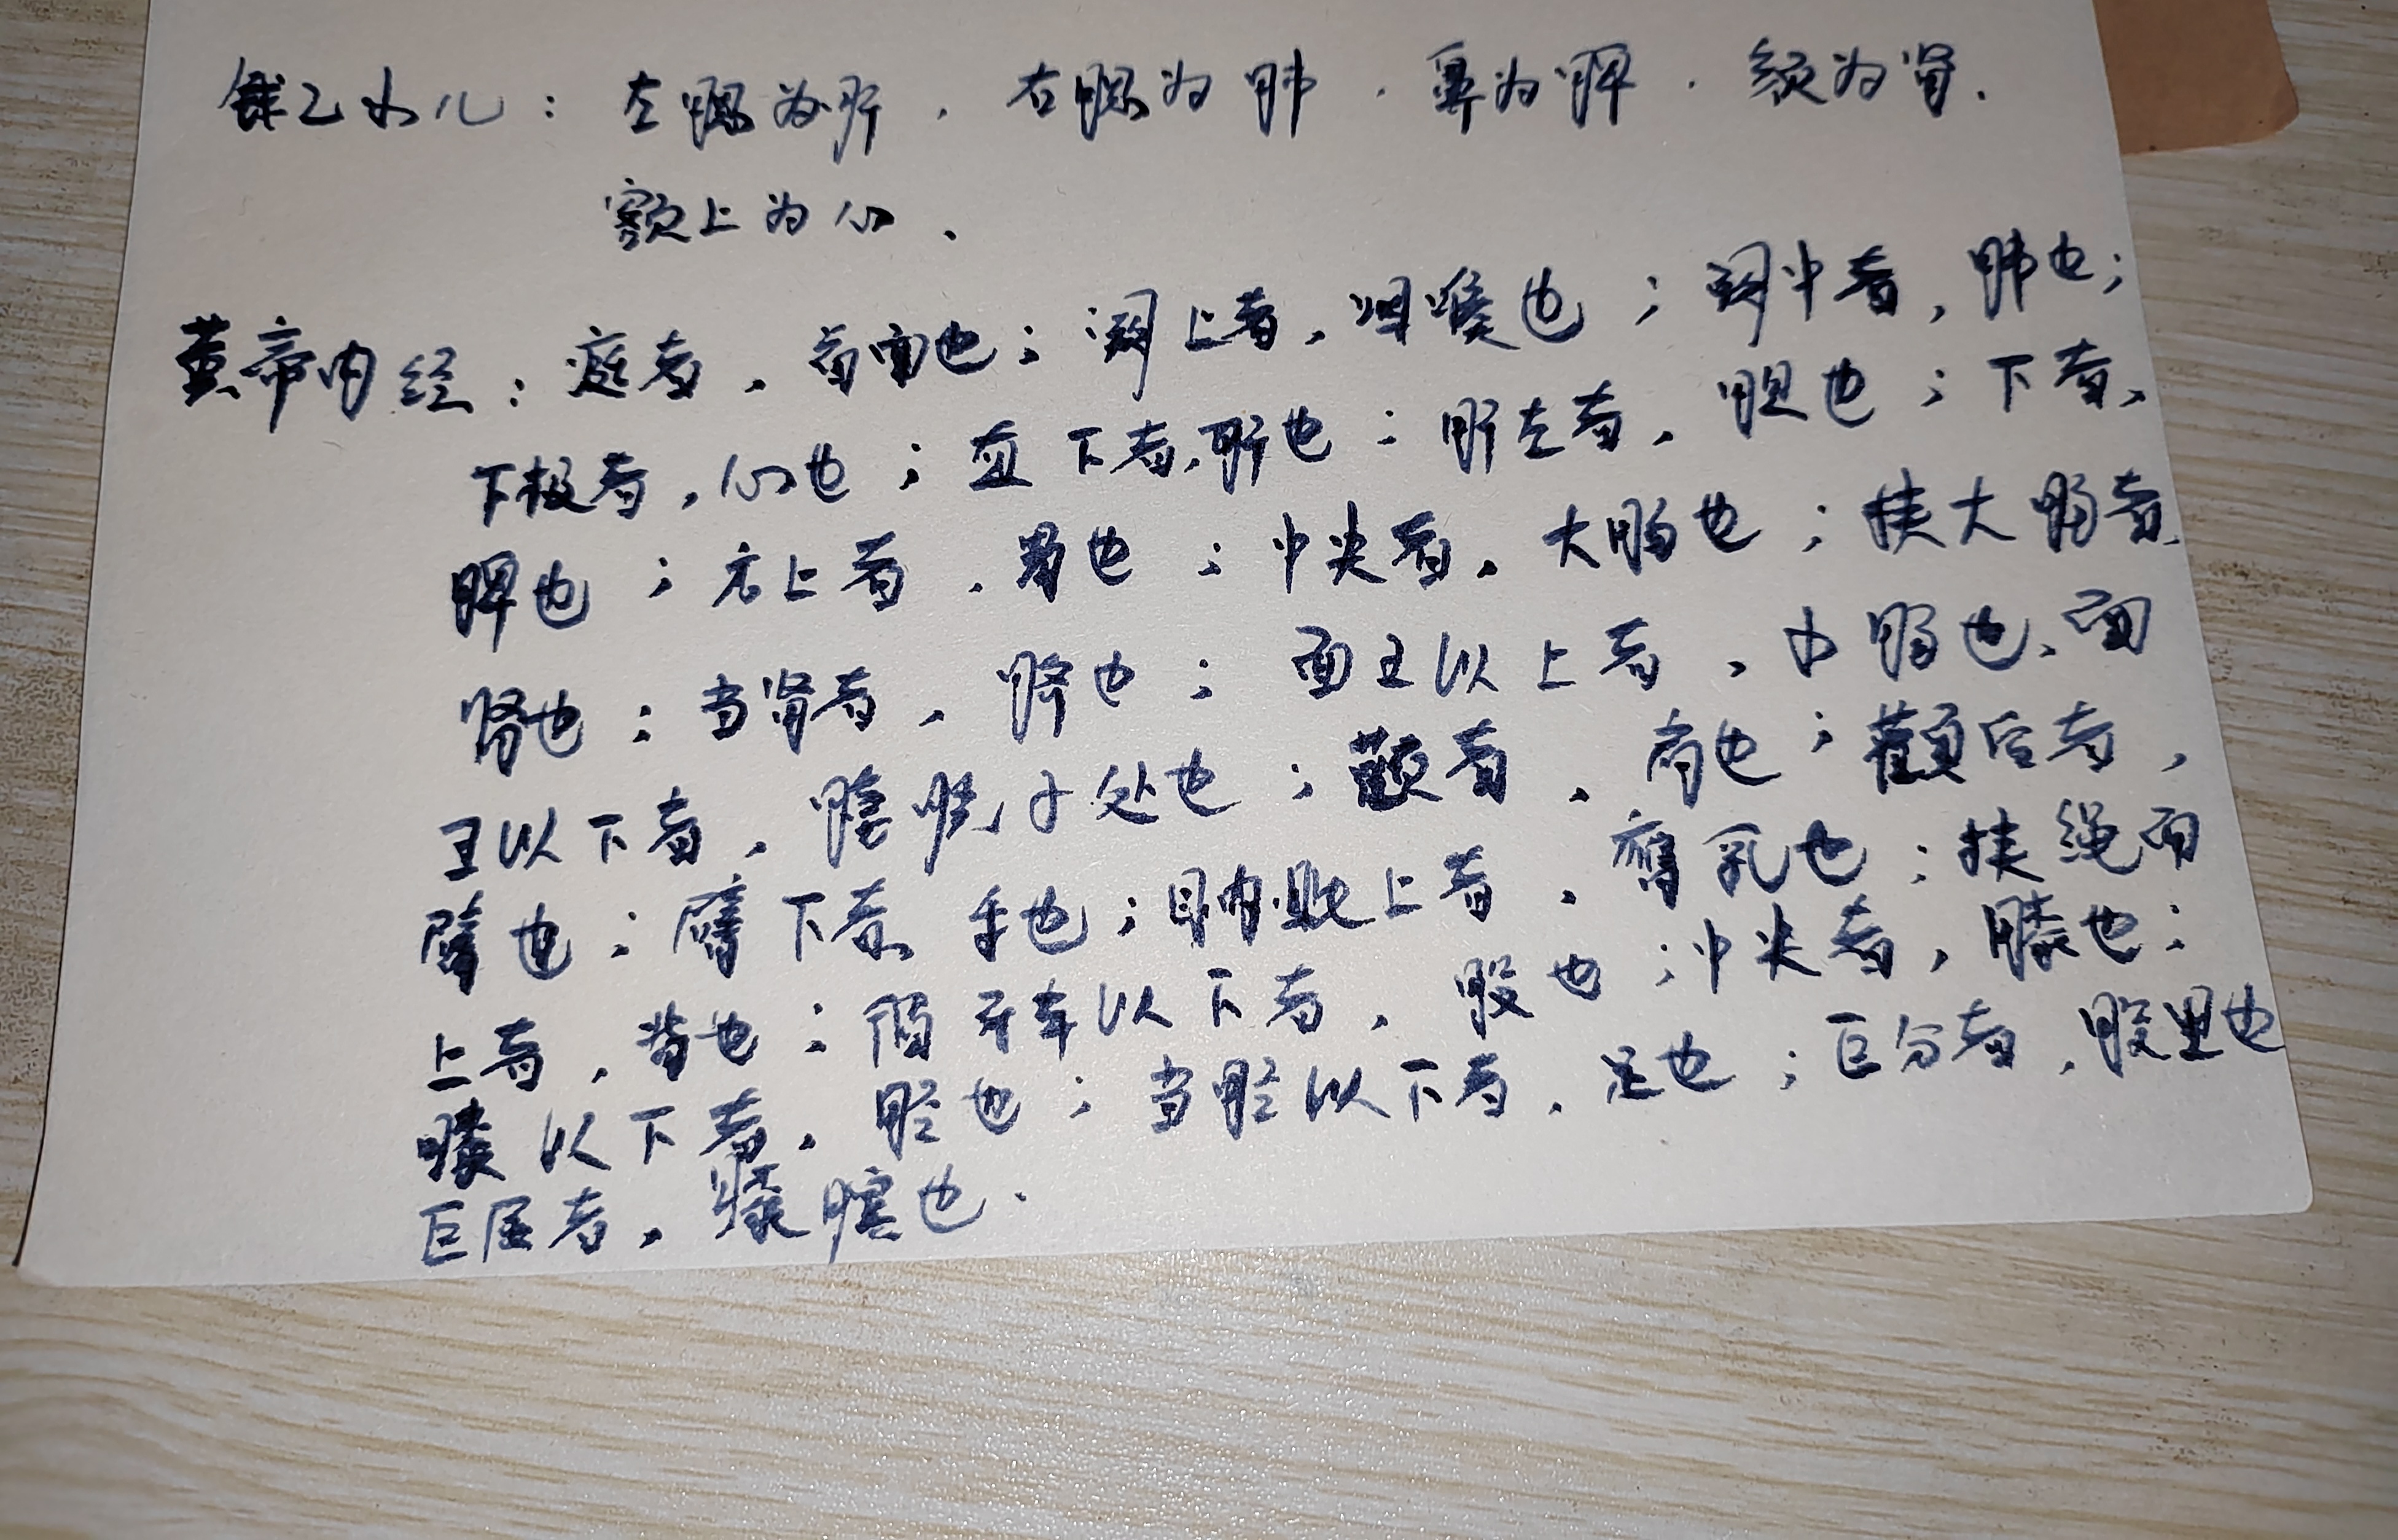 钱乙小儿：左腮为肝，右腮为肺，鼻为脾，颏为肾.
额上为心.
黄帝内经：庭者，首面也；阙上者，咽喉也；阙中者，肺也；
下极者，心也；直下者，肝也；肝左者，胆也；下者，
脾也；方上者，胃也；中央者，大肠也；挟大肠者，
肾也；当肾者，脐也；面王以上者，小肠也、面
王以下者，膀胱子处也；颧者，肩也；颧后者，
臂也；臂下者，手也；目内眦上者，膺乳也；挟绳而
上者，背也；循牙车以下者，股也；中央者，膝也；
膝以下者，胫也；当胫以下者，足也；巨分者，股里也
巨屈者，膝膑也.